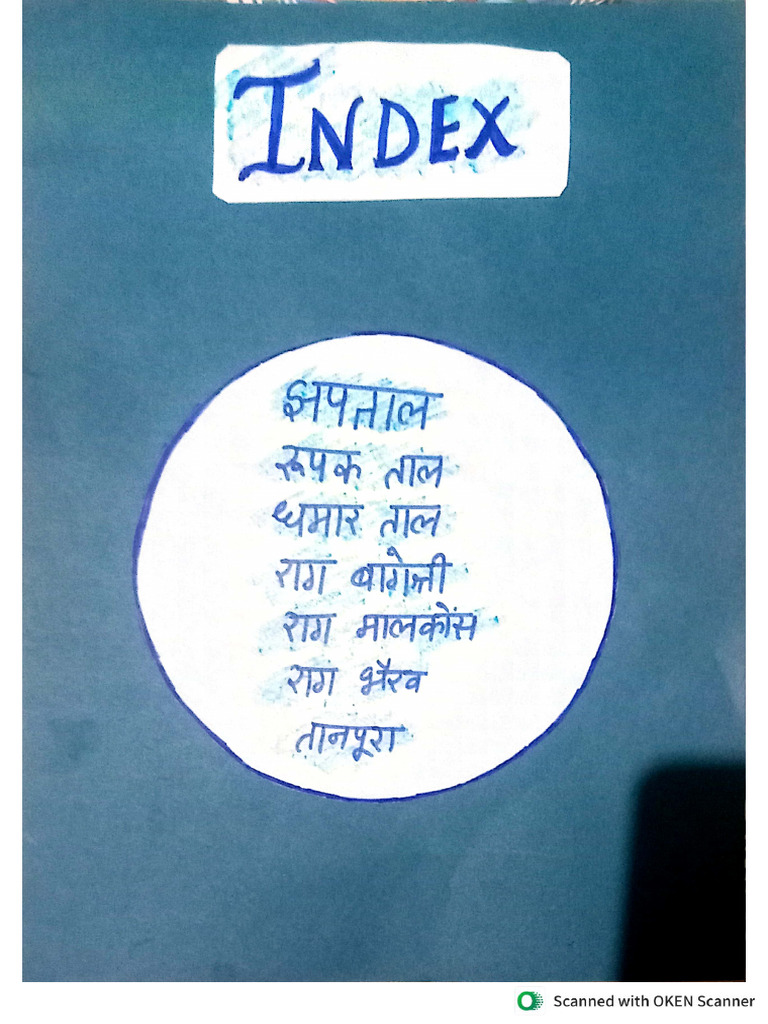 INDEX
झपताल
रूपक ताल
धमार ताल
राग बागेश्री
राग मालकोंस
राग भैरव
तानपूरा
Scanned with OKEN Scanner